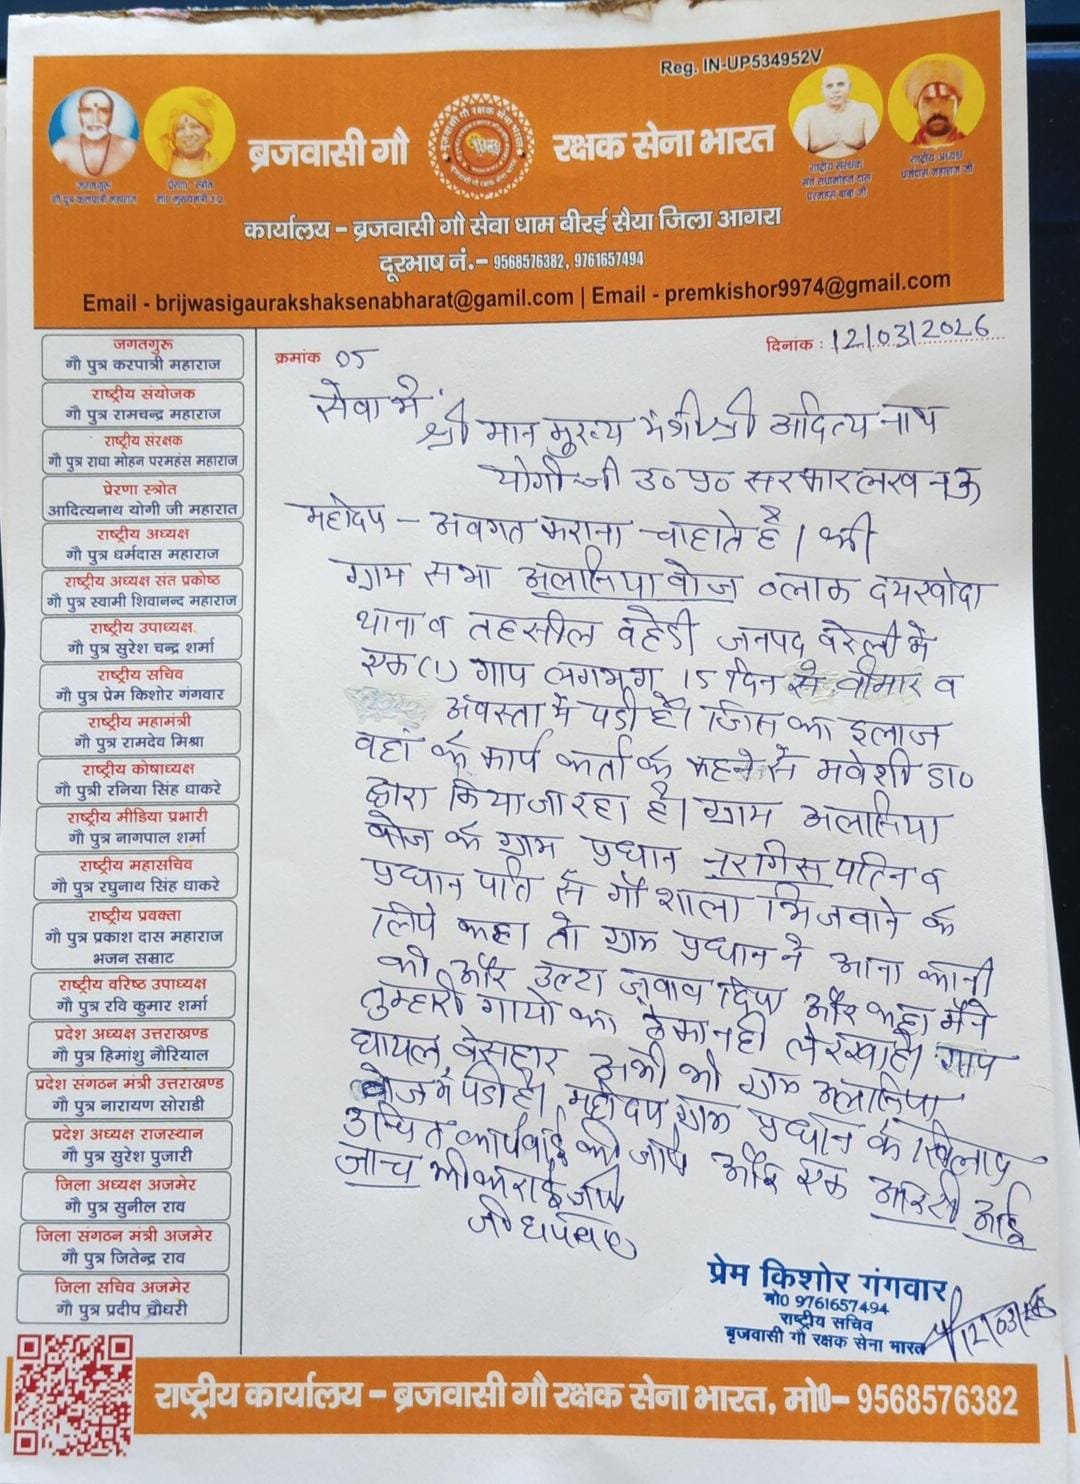 Reg. IN-UP534952V
ब्रजवासी गौ रक्षक सेना भारत
जगतगुरू
गौ पुत्र करपात्री महाराज
प्रेरणा स्त्रोत
मा० मुख्यमंत्री उ.प्र.
राष्ट्रीय संरक्षक
संत राधामोहन दास
परमहंस बाबा जी
राष्ट्रीय अध्यक्ष
धर्मदास महाराज जी
कार्यालय – ब्रजवासी गौ सेवा धाम बीरई सैया जिला आगरा
दूरभाष नं.– 9568576382, 9761657494
Email - brijwasigaurakshaksenabharat@gamil.com | Email - premkishor9974@gmail.com
जगतगुरू
गौ पुत्र करपात्री महाराज
राष्ट्रीय संयोजक
गौ पुत्र रामचन्द्र महाराज
राष्ट्रीय संरक्षक
गौ पुत्र राधा मोहन परमहंस महाराज
प्रेरणा स्त्रोत
आदित्यनाथ योगी जी महारात
राष्ट्रीय अध्यक्ष
गौ पुत्र धर्मदास महाराज
राष्ट्रीय अध्यक्ष संत प्रकोष्ठ
गौ पुत्र स्वामी शिवानन्द महाराज
राष्ट्रीय उपाध्यक्ष
गौ पुत्र सुरेश चन्द्र शर्मा
राष्ट्रीय सचिव
गौ पुत्र प्रेम किशोर गंगवार
राष्ट्रीय महामंत्री
गौ पुत्र रामदेव मिश्रा
राष्ट्रीय कोषाध्यक्ष
गौ पुत्री रनिया सिंह धाकरे
राष्ट्रीय मीडिया प्रभारी
गौ पुत्र नागपाल शर्मा
राष्ट्रीय महासचिव
गौ पुत्र रघुनाथ सिंह धाकरे
राष्ट्रीय प्रवक्ता
गौ पुत्र प्रकाश दास महाराज
भजन सम्राट
राष्ट्रीय वरिष्ठ उपाध्यक्ष
गौ पुत्र रवि कुमार शर्मा
प्रदेश अध्यक्ष उत्तराखण्ड
गौ पुत्र हिमांशु नौरियाल
प्रदेश संगठन मंत्री उत्तराखण्ड
गौ पुत्र नारायण सोराडी
प्रदेश अध्यक्ष राजस्थान
गौ पुत्र सुरेश पुजारी
जिला अध्यक्ष अजमेर
गौ पुत्र सुनील राव
जिला संगठन मंत्री अजमेर
गौ पुत्र जितेन्द्र राव
जिला सचिव अजमेर
गौ पुत्र प्रदीप चौधरी
क्रमांक 05
दिनांक : 12/03/2026
सेवा में
श्री मान मुख्य मंत्री श्री आदित्य नाथ
योगी जी उ० प्र० सरकार लखनऊ
महोदय – अवगत कराना चाहाते है। की
ग्राम सभा अलानिया वोज ब्लाक दमखोदा
थाना व तहसील वहेडी जनपद वरेली मे
एक (1) गाय लगभग 15 दिन से वीमार व
अवस्ता मे पडी है। जिस का इलाज
वहां के कार्य कर्ता के कहने से मवेशी डा०
द्वारा किया जा रहा है। ग्राम अलानिया
वोज के ग्राम प्रधान नरगिस पत्नि व
प्रधान पति से गौ शाला भिजवाने के
लिये कहा तो ग्राम प्रधान ने आना कानी
की और उल्टा जवाव दिया और कहा मैने
तुम्हारी गायो का ठेका नही ले रखा है। गाय
घायल वेसहार अभी भी ग्राम अलानिया
वोज मे पडी है। महोदय ग्राम प्रधान के खिलाप
उचित कार्यवाई की जाये और एक आईटी आई
जाच भी कराई जाये
प्रेम किशोर गंगवार
मो0 9761657494
राष्ट्रीय सचिव
बृजवासी गौ रक्षक सेना भारत
12/03/26
राष्ट्रीय कार्यालय – ब्रजवासी गौ रक्षक सेना भारत, मो0– 9568576382